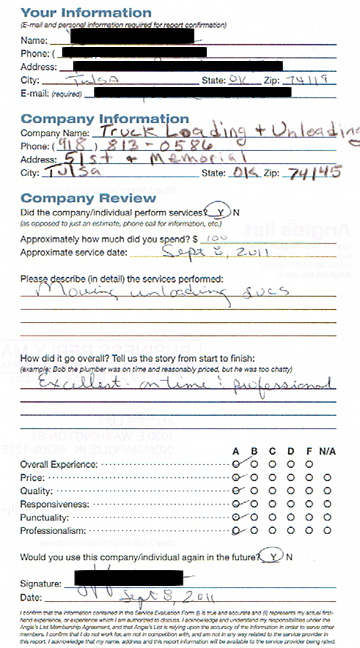 Your Information
(E-mail and personal information required for report confirmation)
Name:
Phone: (
Address:
City: Tulsa State: OK Zip: 74119
E-mail: (required)
Company Information
Company Name: Truck Loading + Unloading
Phone: (918) 813-0586
Address: 51st + Memorial
City: Tulsa State: OK Zip: 74145
Company Review
Did the company/individual perform services? Y N
(as opposed to just an estimate, phone call for information, etc.)
Approximately how much did you spend? $ 100
Approximate service date: Sept 8, 2011
Please describe (in detail) the services performed:
Moving unloading svcs
How did it go overall? Tell us the story from start to finish:
(example: Bob the plumber was on time and reasonably priced, but he was too chatty)
Excellent. on time & professional
A B C D F N/A
Overall Experience:
Price:
Quality:
Responsiveness:
Punctuality:
Professionalism:
Would you use this company/individual again in the future? Y N
Signature:
Date: Sept 8, 2011
I confirm that the information contained in this Service Evaluation Form (i) is true and accurate and (ii) represents my actual first-
hand experience, or experience which I am authorized to discuss. I acknowledge and understand my responsibilities under the
Angie's List Membership Agreement, and that Angie's List is relying upon the accuracy of the information in order to serve other
members. I confirm that I do not work for, am not in competition with, and am not in any way related to the service provider in
this report. I acknowledge that my name, address and this report information will be available to the service provider being rated.